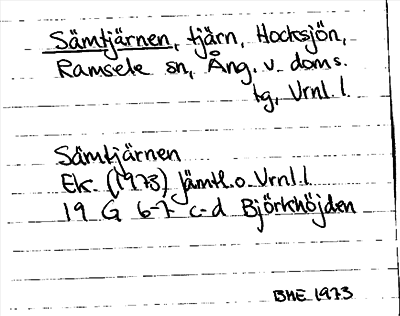 Sämtjärnen, tjärn, Hocksjön,
Ramsele sn, Ång. v. doms.
tg, Vrnl. l.
Sämtjärnen
Ek. (1973) Jämtl. o. Vrnl. l.
19 G 6-7 c-d Björkhöjden
BME 1973